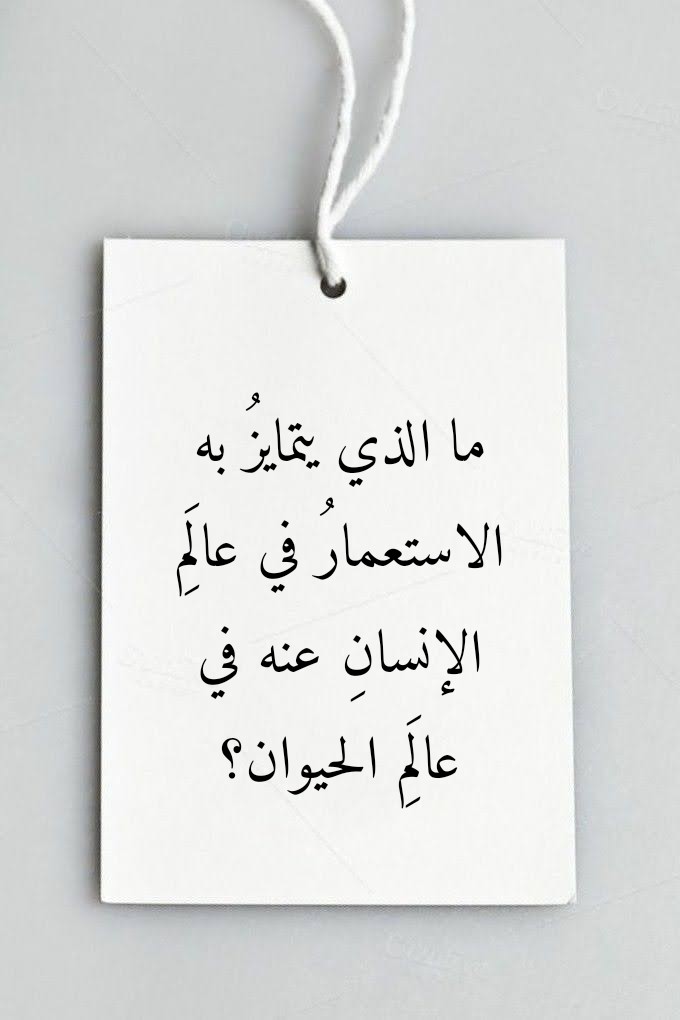 ما الذي يتمايزُ به
الاستعمارُ في عالَمِ
الإنسانِ عنه في
عالَمِ الحيوان؟